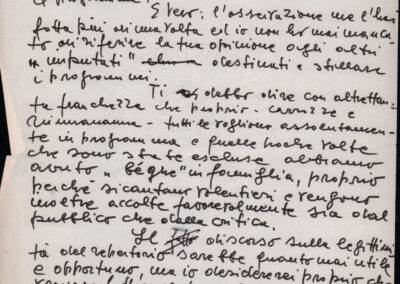 È vero: l'osservazione me l'hai
fatta più di una volta ed io non ho mai manca-
to di riferire la tua opinione agli altri
„imputati" destinati a stillare
i programmi.
Ti debbo dire con altrettan-
ta franchezza che proprio - carezze e
rimmananna - tutti le vogliono assolutamen-
te in programma e quelle poche volte
che sono state escluse abbiamo
avuto „beghe" in famiglia, proprio
perché si cantano volentieri e vengono
inoltre accolte favorevolmente sia dal
pubblico che dalla critica.
Il discorso sulla legittimi-
tà del repertorio sarebbe quanto mai utile
e opportuno, ma io desidererei proprio che